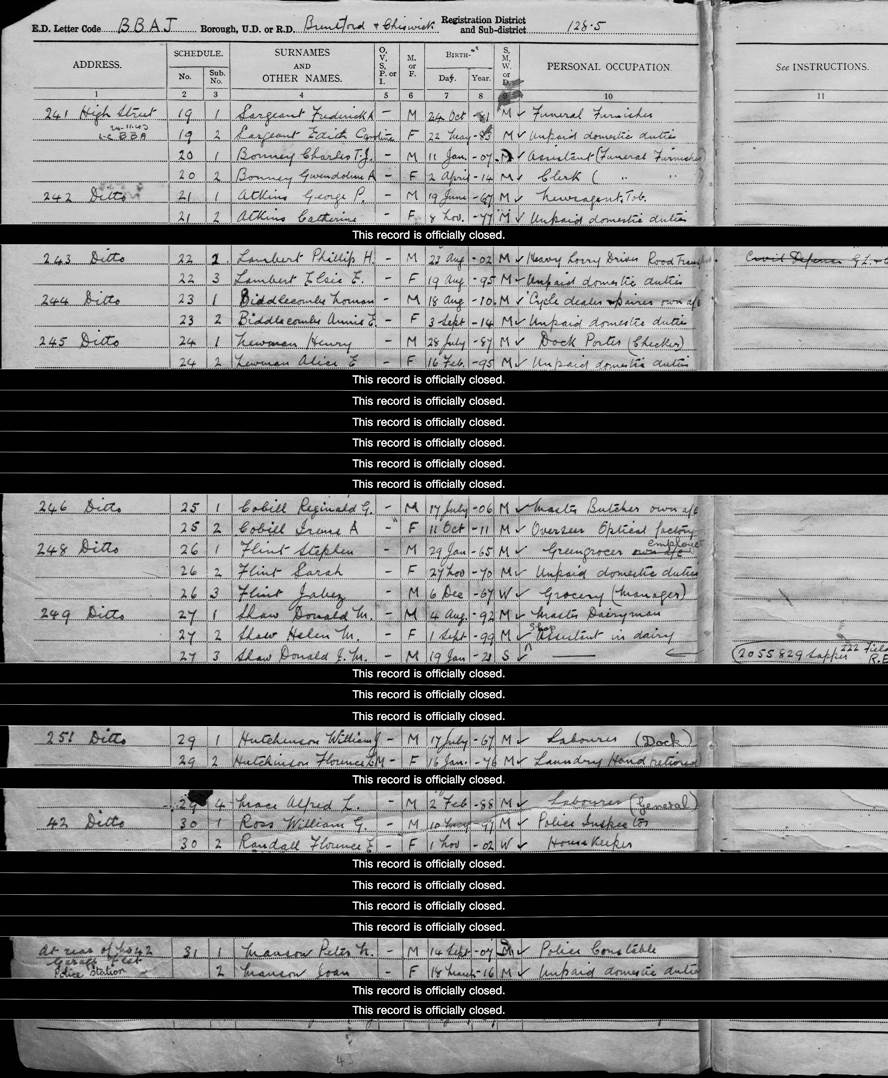 E.D. Letter Code B.B.A.J Borough, U.D. or R.D. Brentford & Chiswick Registration District and Sub-district 128-5
ADDRESS. SCHEDULE. SURNAMES AND OTHER NAMES. O, V, S, P. or I. M. or F. BIRTH— S, M, W, or D. PERSONAL OCCUPATION. See INSTRUCTIONS.
No. Sub. No. Day. Year.
1 2 3 4 5 6 7 8 10 11
241 High Street 19 1 Sargeant Frederick A – M 24 Oct -81 M ✓ Funeral Furnisher
24-11-43 L.C. BBA 19 2 Sargeant Edith Caroline F 22 May -83 M ✓ Unpaid domestic duties
20 1 Bonney Charles T.J. – M 11 Jan. -07 M Assistant (Funeral Furnisher)
20 2 Bonney Gwendoline A – F 2 April -14 M ✓ Clerk ( " " )
242 Ditto 21 1 Atkins George P. – M 19 June -67 M ✓ Newsagent, Tob.
21 2 Atkins Catherine – F 8 Nov. -77 M ✓ Unpaid domestic duties
This record is officially closed.
243 Ditto 22 2 Lambert Phillip H. – M 23 Aug -02 M ✓ Heavy Lorry Driver Road Transport Civil Defence
22 3 Lambert Elsie E. – F 19 Aug -95 M ✓ Unpaid domestic duties
244 Ditto 23 1 Biddlecombe – M 18 Aug -10 M ✓ Cycle dealer own a/c
23 2 Biddlecombe Annie E. – F 3 Sept -14 M ✓ Unpaid domestic duties
245 Ditto 24 1 Newman Henry – M 28 July -87 M ✓ Dock Porter (Checker)
24 2 Newman Alice E – F 16 Feb. -95 M ✓ Unpaid domestic duties
This record is officially closed.
This record is officially closed.
This record is officially closed.
This record is officially closed.
This record is officially closed.
This record is officially closed.
246 Ditto 25 1 Cobill Reginald G. – M 17 July -06 M ✓ Master Butcher own a/c
25 2 Cobill Irene A – F 11 Oct -11 M ✓ Overseer Optical factory
248 Ditto 26 1 Flint Stephen – M 29 Jan -65 M ✓ Greengrocer own a/c employer
26 2 Flint Sarah – F 27 Nov -70 M ✓ Unpaid domestic duties
26 3 Flint Jabez – M 6 Dec -67 W ✓ Grocery (Manager)
249 Ditto 27 1 Shaw Donald M. – M 4 Aug. -92 M ✓ Master Dairyman
27 2 Shaw Helen M. – F 1 Sept -99 M ✓ Shop Assistant in dairy
27 3 Shaw Donald J.M. – M 19 Jan -21 S ✓ — 2055829 Sapper 222 Field R.E
This record is officially closed.
This record is officially closed.
This record is officially closed.
251 Ditto 29 1 Hutchinson William J – M 17 July -67 M ✓ Labourer (Dock)
29 2 Hutchinson Florence E M – F 16 Jan. -76 M ✓ Laundry Hand retired
This record is officially closed.
29 4 Mace Alfred L. – M 2 Feb -88 M ✓ Labourer (General)
42 Ditto 30 1 Ross William G. – M 10 M ✓ Police Inspector
30 2 Randall Florence E – F 1 Nov -02 W ✓ Housekeeper
This record is officially closed.
This record is officially closed.
This record is officially closed.
This record is officially closed.
At rear of No 42 31 1 Manson Peter N. – M 14 Sept -07 M ✓ Police Constable
Garage Flat
Police Station 2 Manson Joan – F 18 March -16 M ✓ Unpaid domestic duties
This record is officially closed.
This record is officially closed.